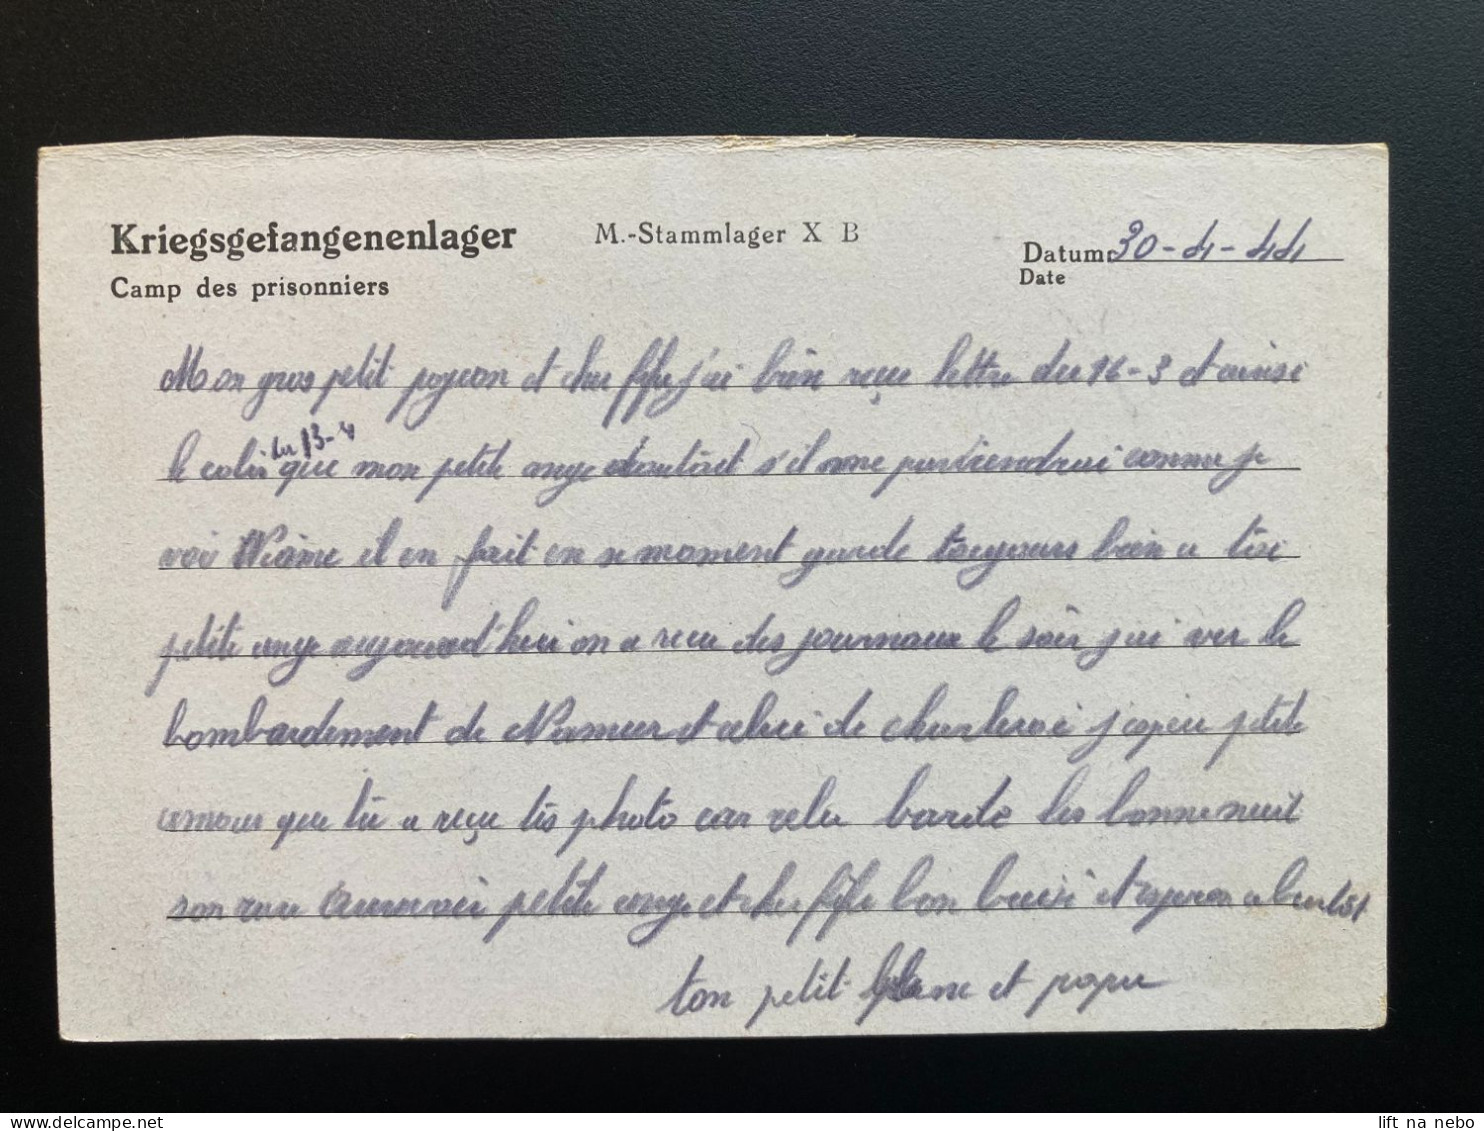 Kriegsgefangenenlager
Camp des prisonniers
M.-Stammlager X B
Datum: 30-4-44
Date
Mon gros petit pogeon et cher fifi j'ai bien reçu lettre du 16-3 et ainsi
le colis du 13-4 que mon petite ange s'il me comme je
voi il en fait en se moment garde toujours bien a toi
petite ange aujourd'hui on a recu des journaux le soir j'ai ver le
bombardement de Namur et celui de charleroi j'espeu petite
amour que tu a reçu tes photo car cela les bonne nuit
son petite ange et cher fifi bon baisi et a bientot
ton petit et papa
lift na nebo